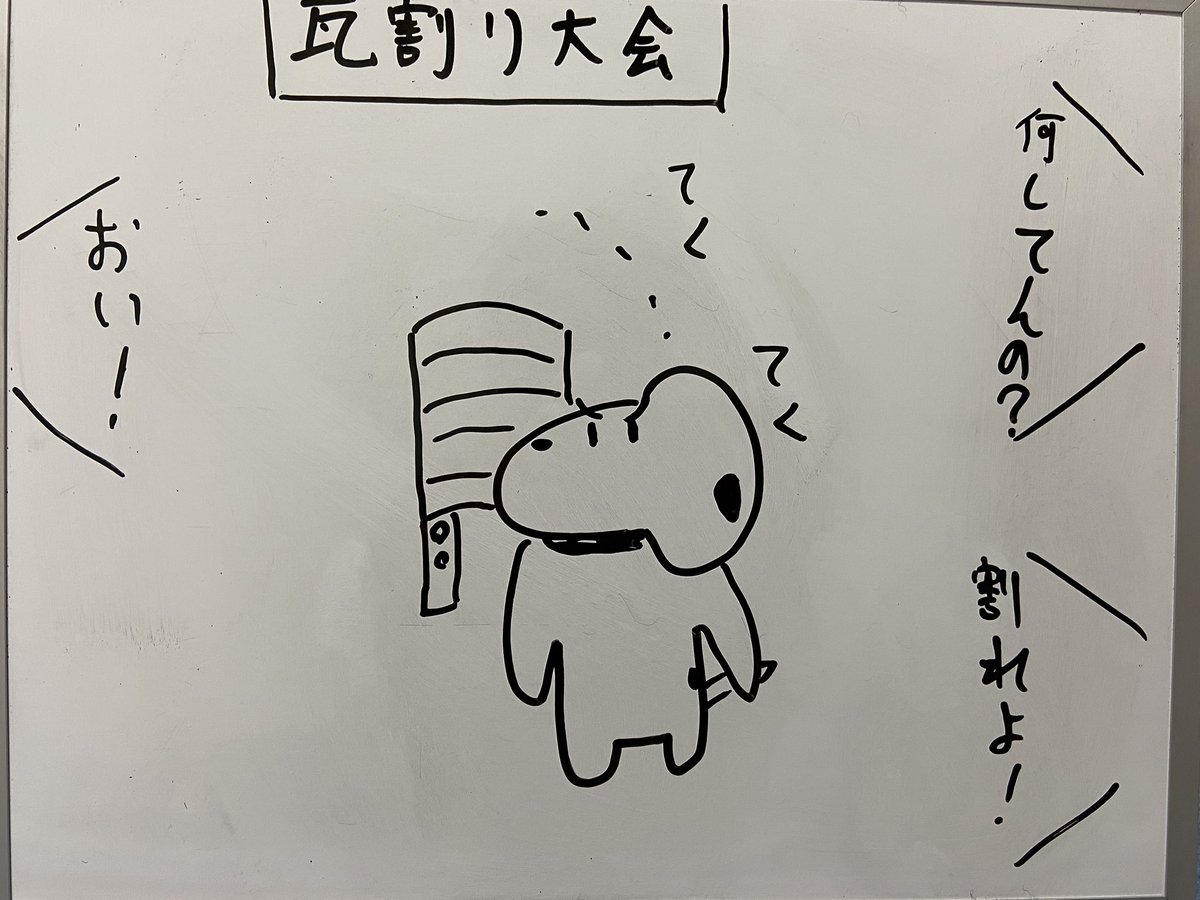 瓦割り大会
何してんの?
てく
てく
割れよ!
おい!